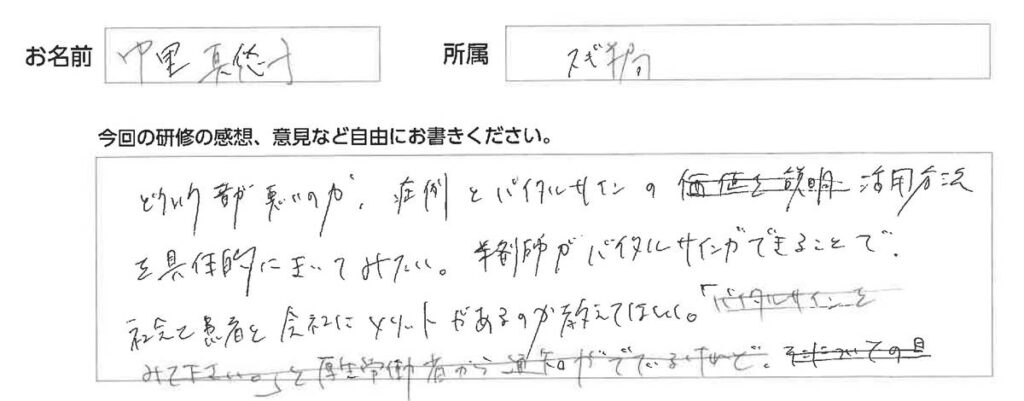 お名前 中里 真悠子 所属 スギ薬局
今回の研修の感想、意見など自由にお書きください。
どういう音が悪いのか、症例とバイタルサインの価値を説明 活用方法
を具体的にきいてみたい。薬剤師がバイタルサインができることで、
社会と患者と会社にメリットがあるのか教えてほしい。「バイタルサインを
みて下さい。」と厚生労働省から通知がでているけれど、それについての具